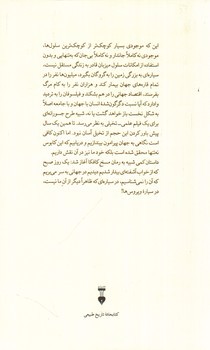 این که موجودی بسیار کوچک‌تر از کوچک‌ترین سلول‌ها،
موجودی نه کاملاً جاندار و نه کاملاً بی‌جان که به‌تنهایی و بدون
استفاده از امکانات سلول میزبان قادر به زندگی مستقل نیست،
سیاره‌ای به بزرگی زمین را به گروگان بگیرد، میلیون‌ها نفر را در
تمام قاره‌های جهان بیمار کند و هزاران نفر را به کام مرگ
بفرستد، اقتصاد جهانی را در هم بشکند و فیلسوفان را به تردید
وادارد که آیا نسبت دگرگون‌شدهٔ انسان با جهان و با جامعه اصلاً
به شکل نخست باز خواهد گشت یا نه، شبیه طرح جسورانه‌ای
برای یک فیلم علمی ـ تخیلی به نظر می‌رسد. تا همین یک سال
پیش باور کردن این حجم از تخیل آسان نبود. اما اکنون کافی
است نگاهی به جهان پیرامون بیندازیم و دریابیم که این کابوس
نه‌تنها محقق شده است بلکه خود ما نیز در آن نقش داریم.
داستان کمی شبیه به رمان مسخ کافکا آغاز شد: یک روز صبح
که از خواب آشفته‌ای بیدار شدیم دیدیم در جهانی به سر می‌بریم
که آن را نمی‌شناسیم، در سیاره‌ای که ظاهراً دیگر از آن ما نیست،
در سیارهٔ ویروس‌ها!
کتابخانهٔ تاریخ طبیعی